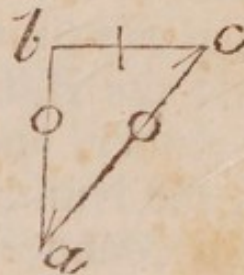 b c
a